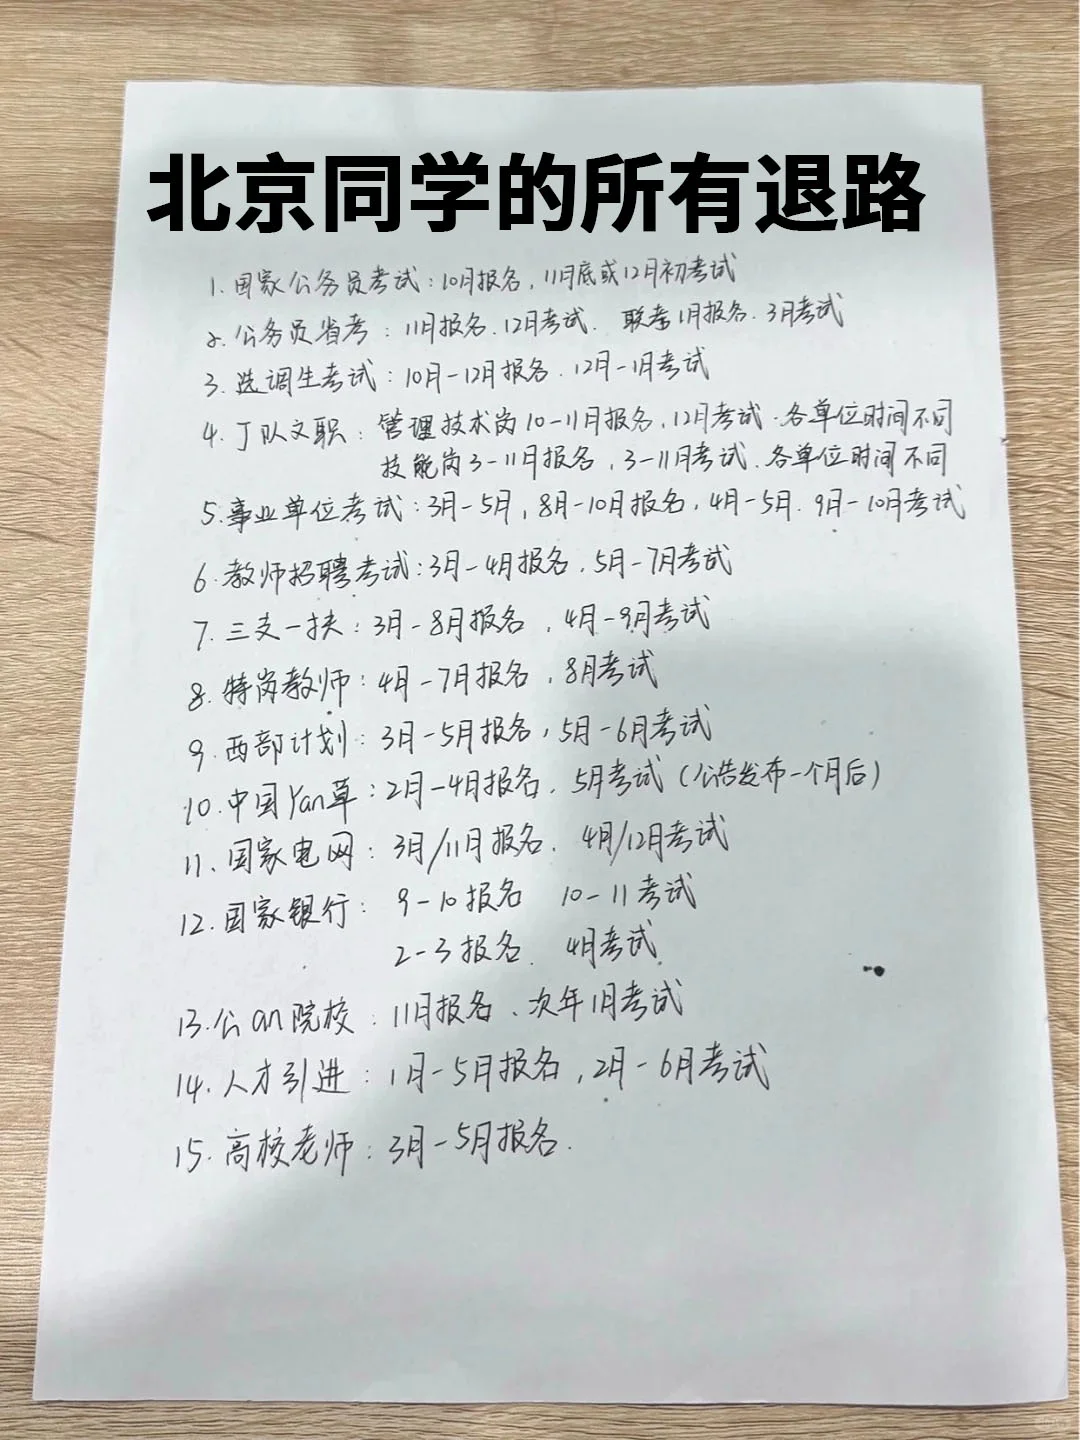 北京同学的所有退路
1. 国家公务员考试:10月报名,11月底或12月初考试
2. 公务员省考:11月报名.12月考试. 联考1月报名.3月考试
3. 选调生考试:10月-12月报名.12月-1月考试
4. 丁队文职:管理技术岗10-11月报名,12月考试.各单位时间不同
技能岗3-11月报名,3-11月考试.各单位时间不同
5. 事业单位考试:3月-5月,8月-10月报名,4月-5月.9月-10月考试
6. 教师招聘考试:3月-4月报名.5月-7月考试
7. 三支一扶:3月-8月报名,4月-9月考试
8. 特岗教师:4月-7月报名,8月考试
9. 西部计划:3月-5月报名,5月-6月考试
10. 中国Yan草:2月-4月报名.5月考试(公告发布一个月后)
11. 国家电网:3月/11月报名.4月/12月考试
12. 国家银行:9-10报名 10-11考试
2-3报名.4月考试
13. 公an院校:11月报名、次年1月考试
14. 人才引进:1月-5月报名,2月-6月考试
15. 高校老师:3月-5月报名.